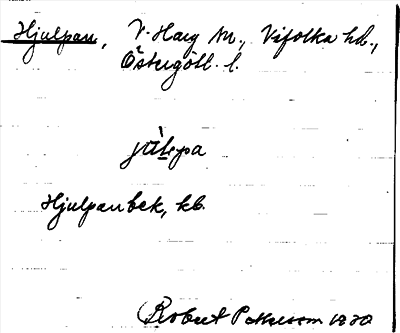 Hjulpan, V. Harg sn., Vifolka hd.,
Östergötl. l.
jùlpa
Hjulpanbek, kb.
Robert Pettersson 1930